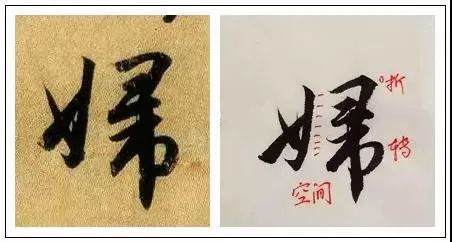 婦 婦
折
转
空间